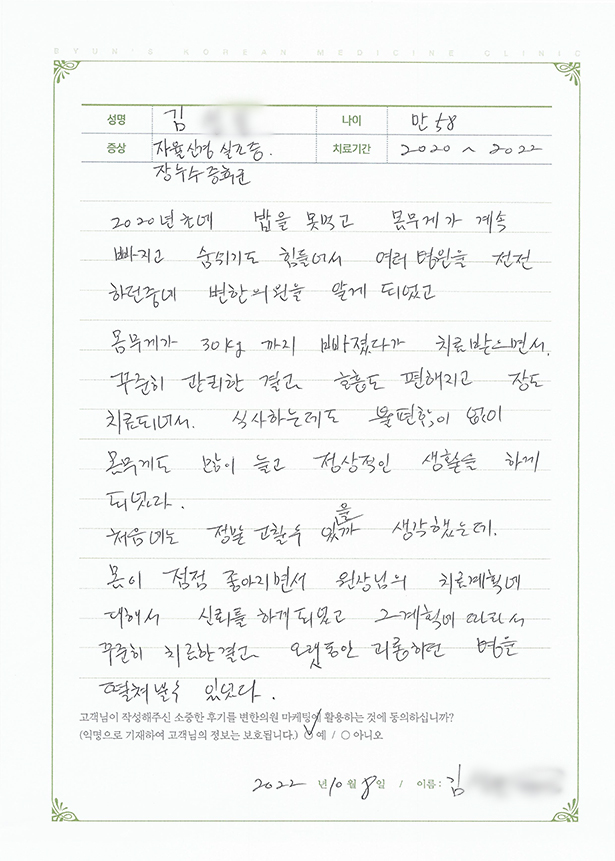 BYUN'S KOREAN MEDICINE CLINIC
성명 김 나이 만 58
증상 자율신경 실조증. 치료기간 2020 ~ 2022
장누수증후군
2020년초에 밥을 못먹고 몸무게가 계속
빠지고 숨쉬기도 힘들어서 여러 병원을 전전
하던중에 변한의원을 알게 되었고
몸무게가 30kg 까지 빠졌다가 치료받으면서.
꾸준히 관리한 결과 호흡도 편해지고 장도
치료되어서. 식사하는데도 불편함이 없이
몸무게도 많이 늘고 정상적인 생활을 하게
되었다.
처음에는 정말 고칠수 있을까 생각했는데.
몸이 점점 좋아지면서 원장님의 치료계획에
대해서 신뢰를 하게되었고 그계획에 따라서
꾸준히 치료한결과 오랫동안 괴롭히던 병을
떨쳐낼수 있었다.
고객님이 작성해주신 소중한 후기를 변한의원 마케팅에 활용하는 것에 동의하십니까?
(익명으로 기재하여 고객님의 정보는 보호됩니다.) ○ 예 / ○ 아니오
2022 년 10 월 8 일 / 이름 : 김